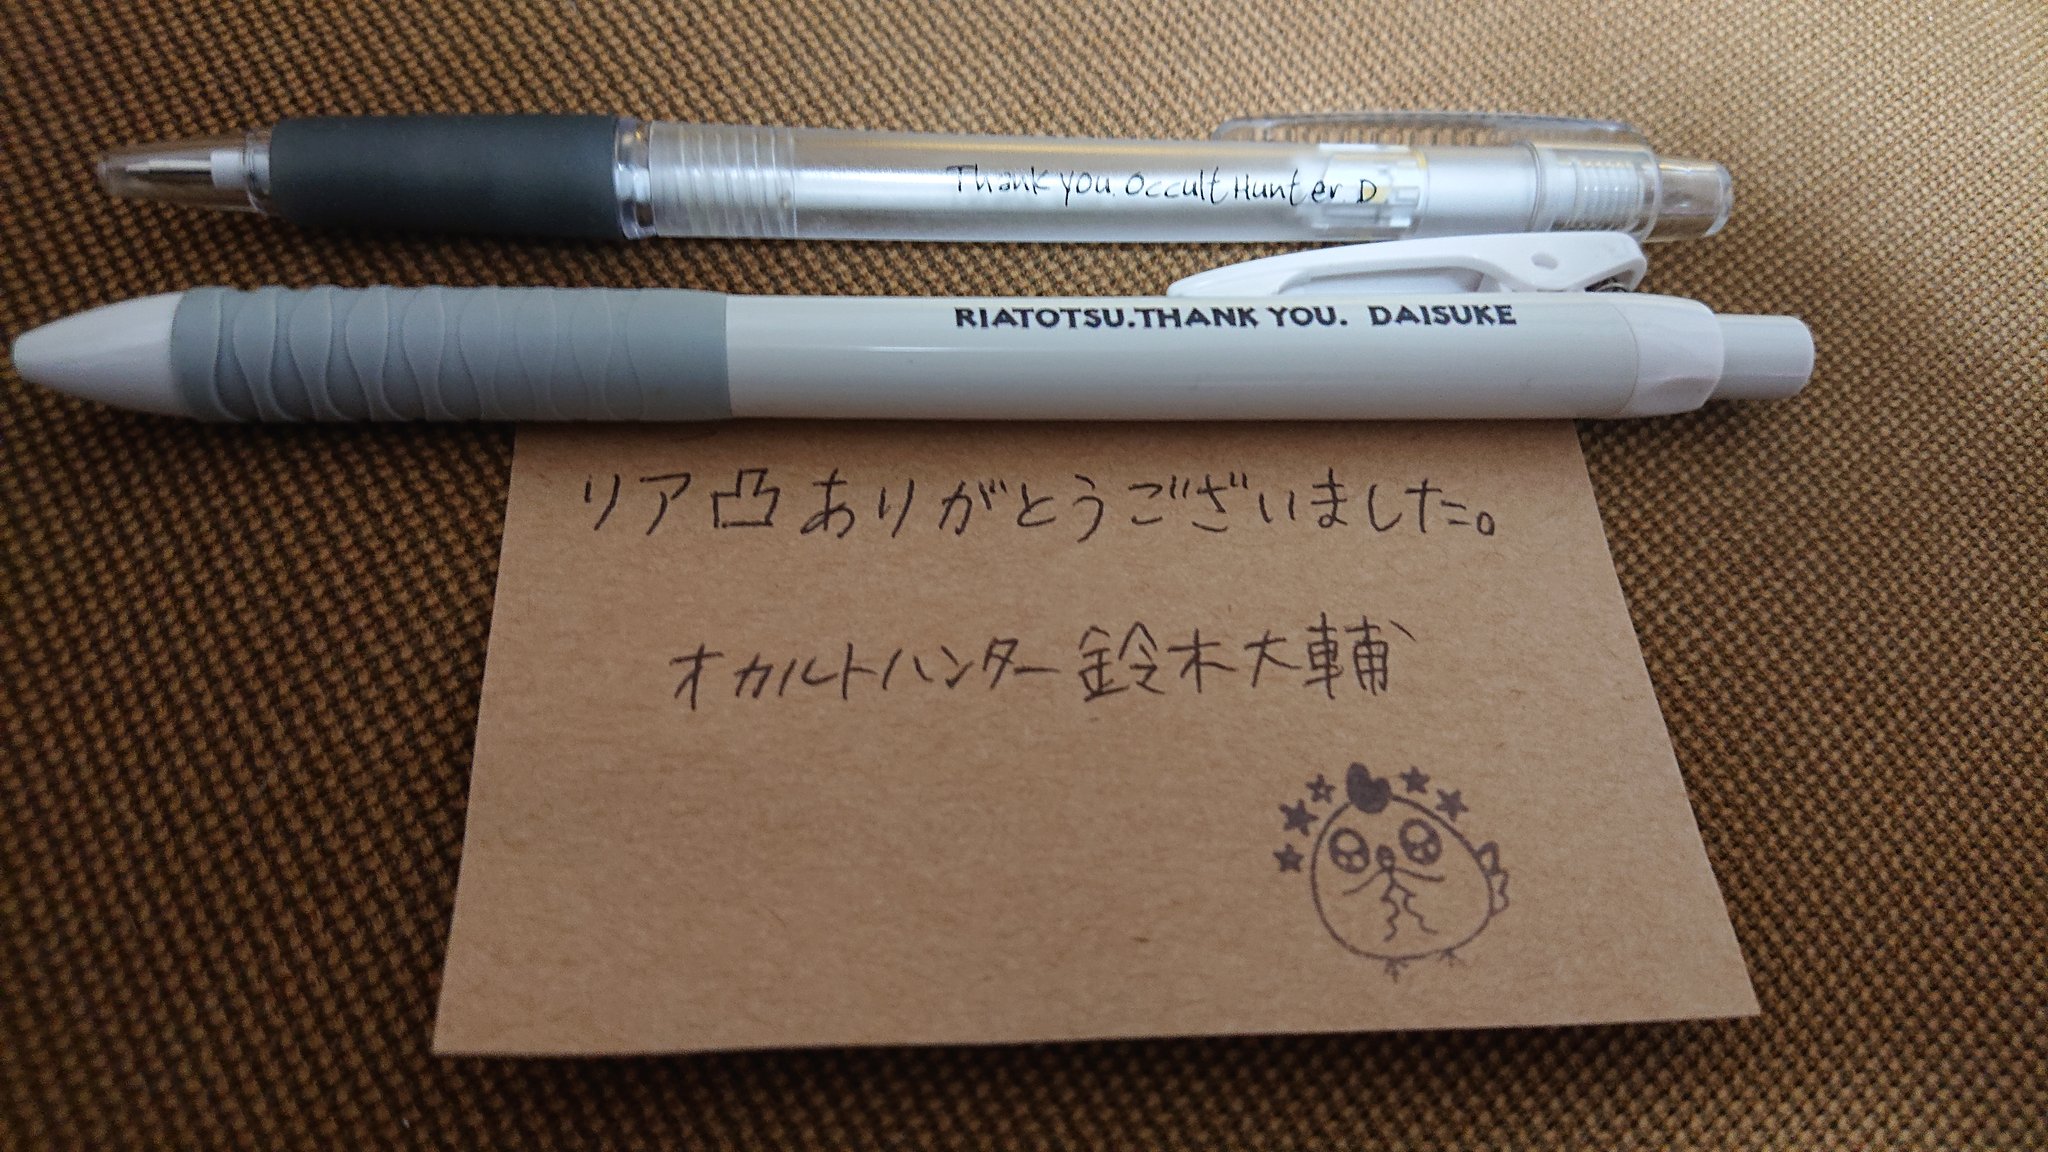 Thank you. Occult Hunter D
RIATOTSU.THANK YOU. DAISUKE
リア凸ありがとうございました。
オカルトハンター鈴木大輔